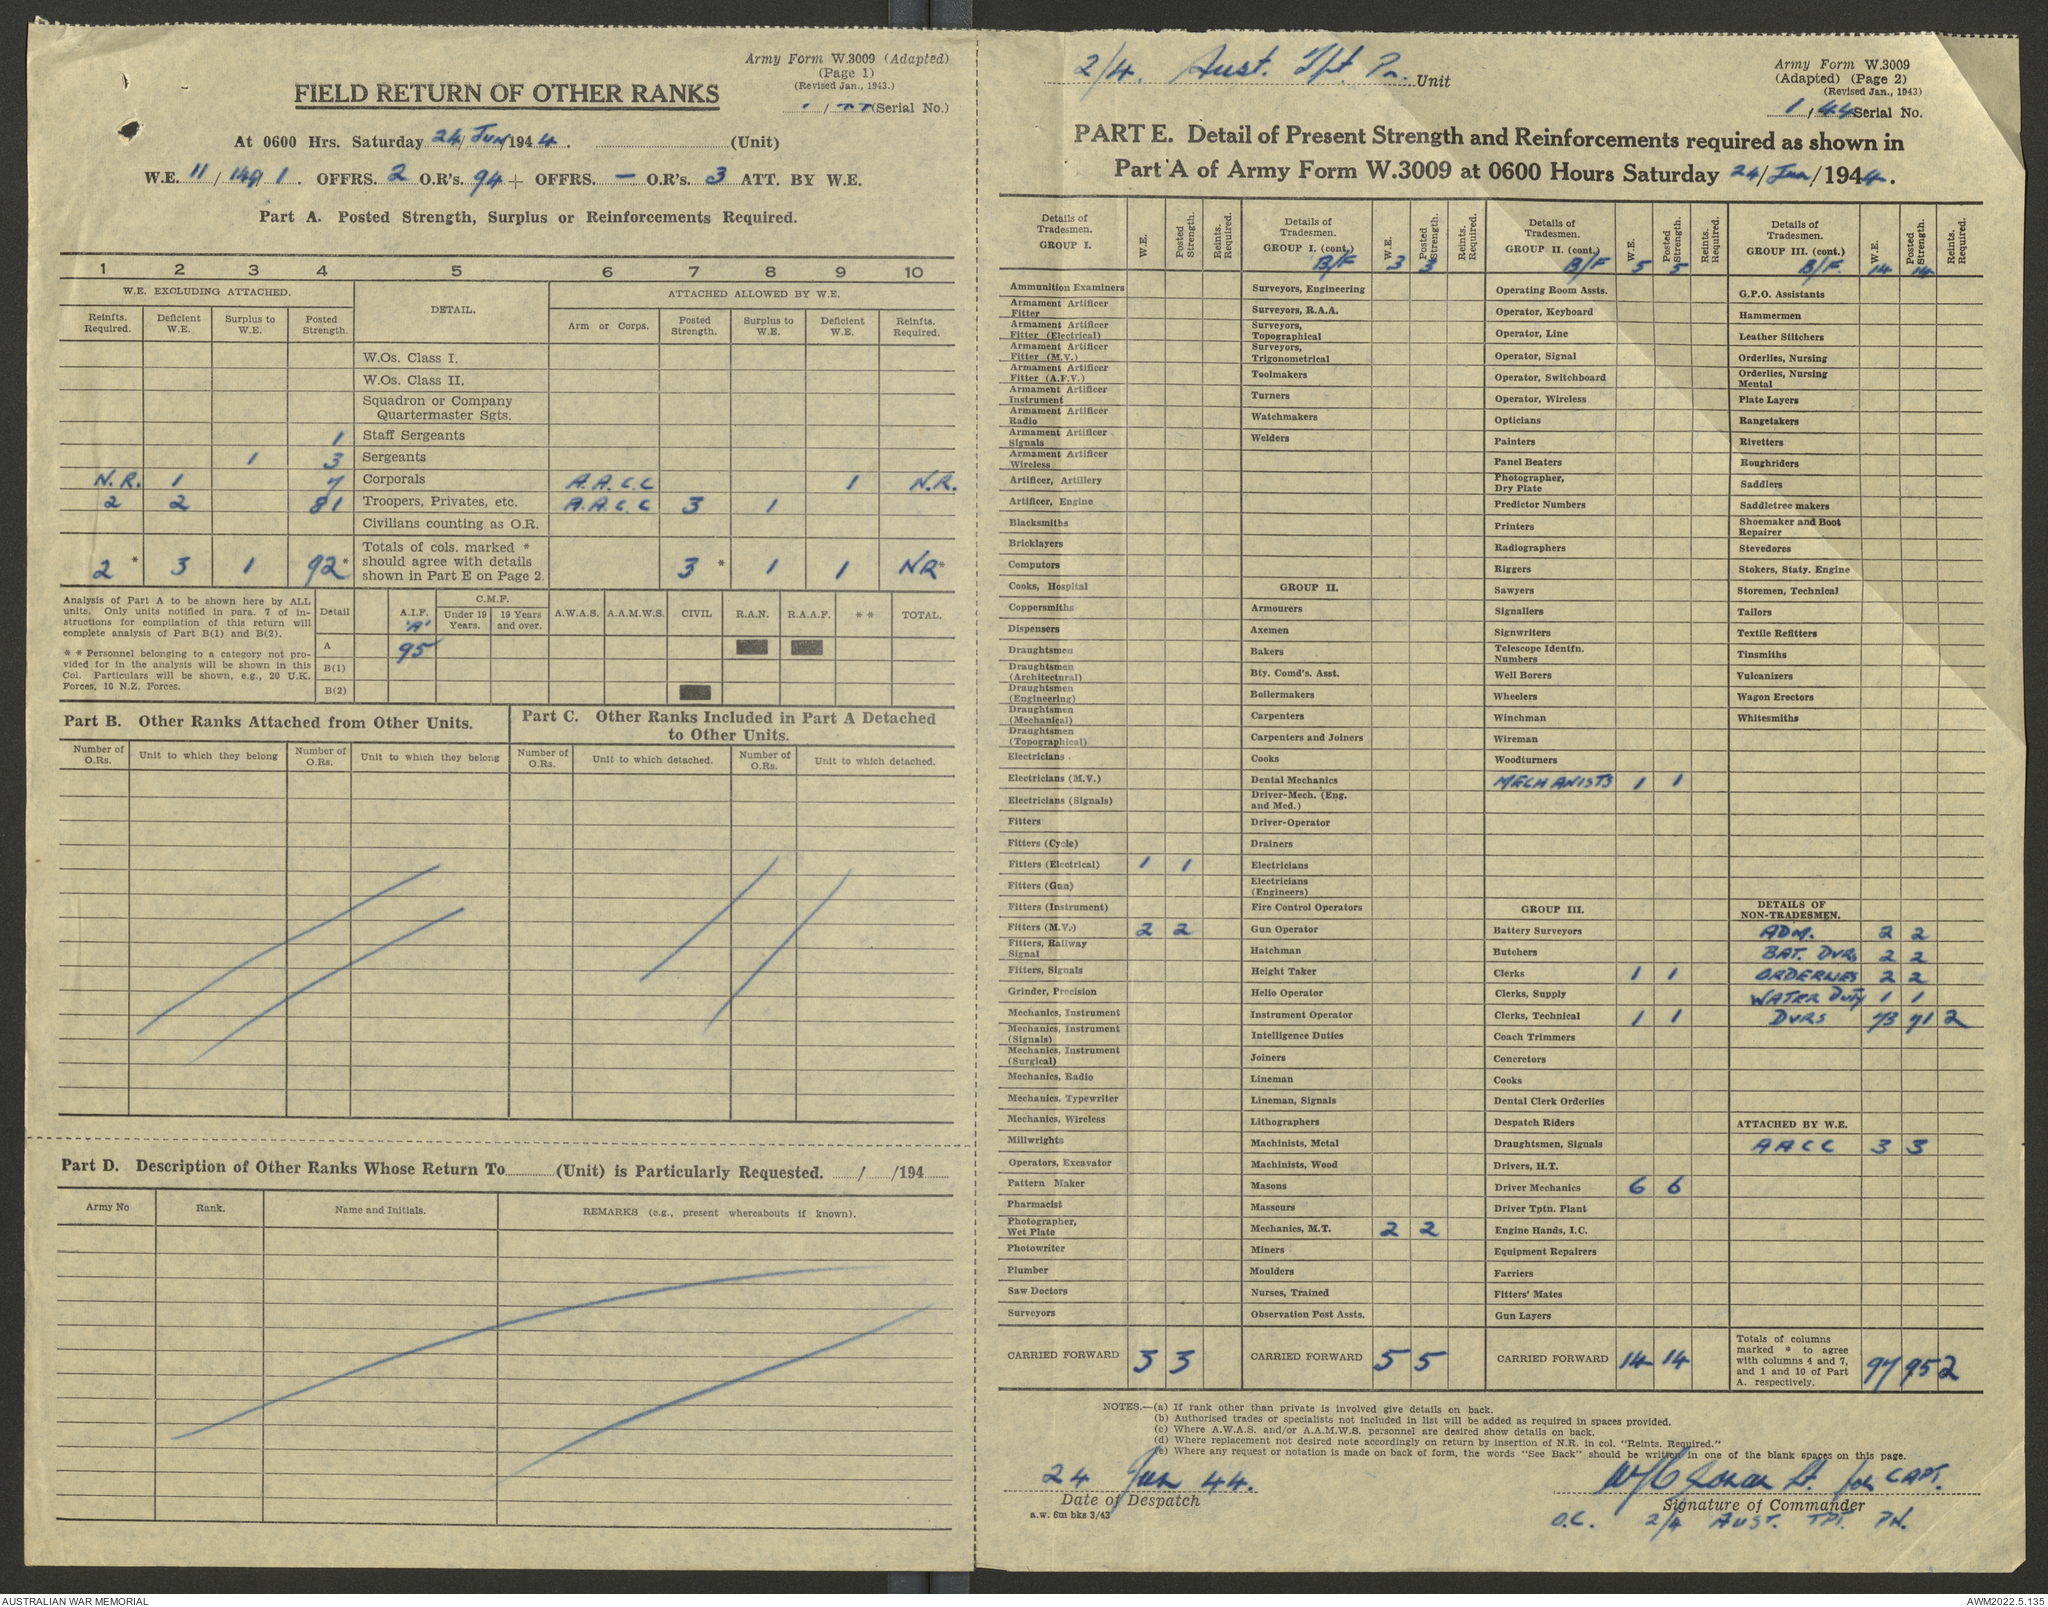 Army Form W.3009 (Adapted)
(Page 1)
(Revised Jan., 1943.)
FIELD RETURN OF OTHER RANKS
(Serial No.)
At 0600 Hrs. Saturday 24/Jun/1944. (Unit)
W.E. 11/149/1. OFFRS. 2 O.R's. 94 + OFFRS. — O.R's. 3 ATT. BY W.E.
Part A. Posted Strength, Surplus or Reinforcements Required.
1 2 3 4 5 6 7 8 9 10
W.E. EXCLUDING ATTACHED. DETAIL. ATTACHED ALLOWED BY W.E.
Reinfts. Required. Deficient W.E. Surplus to W.E. Posted Strength. Arm or Corps. Posted Strength. Surplus to W.E. Deficient W.E. Reinfts. Required.
W.Os. Class I.
W.Os. Class II.
Squadron or Company
Quartermaster Sgts.
1 Staff Sergeants
1 3 Sergeants
N.R. 1 7 Corporals A.A.C.C 1 N.R.
2 2 81 Troopers, Privates, etc. A.A.C.C 3 1
Civilians counting as O.R.
Totals of cols. marked *
should agree with details
shown in Part E on Page 2.
2 * 3 1 92 * 3 * 1 1 NR *
Analysis of Part A to be shown here by ALL
units. Only units notified in para. 7 of in-
structions for compilation of this return will
complete analysis of Part B(1) and B(2).
* * Personnel belonging to a category not pro-
vided for in the analysis will be shown in this
Col. Particulars will be shown, e.g., 20 U.K.
Forces, 10 N.Z. Forces.
Detail A.I.F. 'A' C.M.F. Under 19 Years. 19 Years and over. A.W.A.S. A.A.M.W.S. CIVIL R.A.N. R.A.A.F. * * TOTAL.
A 95
B(1)
B(2)
Part B. Other Ranks Attached from Other Units.
Number of O.Rs. Unit to which they belong Number of O.Rs. Unit to which they belong
Part C. Other Ranks Included in Part A Detached
to Other Units.
Number of O.Rs. Unit to which detached. Number of O.Rs. Unit to which detached.
Part D. Description of Other Ranks Whose Return To (Unit) is Particularly Requested. / /194
Army No Rank. Name and Initials. REMARKS (e.g., present whereabouts if known).
2/4. Aust. Tpt. Pn. Unit
Army Form W.3009
(Adapted) (Page 2)
(Revised Jan., 1943)
1/44 Serial No.
PART E. Detail of Present Strength and Reinforcements required as shown in
Part A of Army Form W.3009 at 0600 Hours Saturday 24/Jun/1944.
Details of Tradesmen. GROUP I. W.E. Posted Strength. Reints. Required.
Ammunition Examiners
Armament Artificer Fitter
Armament Artificer Fitter (Electrical)
Armament Artificer Fitter (M.V.)
Armament Artificer Fitter (A.F.V.)
Armament Artificer Instrument
Armament Artificer Radio
Armament Artificer Signals
Armament Artificer Wireless
Artificer, Artillery
Artificer, Engine
Blacksmiths
Bricklayers
Computors
Cooks, Hospital
Coppersmiths
Dispensers
Draughtsmen
Draughtsmen (Architectural)
Draughtsmen (Engineering)
Draughtsmen (Mechanical)
Draughtsmen (Topographical)
Electricians
Electricians (M.V.)
Electricians (Signals)
Fitters
Fitters (Cycle)
Fitters (Electrical) 1 1
Fitters (Gun)
Fitters (Instrument)
Fitters (M.V.) 2 2
Fitters, Railway Signal
Fitters, Signals
Grinder, Precision
Mechanics, Instrument
Mechanics, Instrument (Signals)
Mechanics, Instrument (Surgical)
Mechanics, Radio
Mechanics, Typewriter
Mechanics, Wireless
Millwrights
Operators, Excavator
Pattern Maker
Pharmacist
Photographer, Wet Plate
Photowriter
Plumber
Saw Doctors
Surveyors
CARRIED FORWARD 3 3
Details of Tradesmen. GROUP I. (cont.) W.E. Posted Strength. Reints. Required.
B/F 3 3
Surveyors, Engineering
Surveyors, R.A.A.
Surveyors, Topographical
Surveyors, Trigonometrical
Toolmakers
Turners
Watchmakers
Welders
GROUP II.
Armourers
Axemen
Bakers
Bty. Comd's. Asst.
Boilermakers
Carpenters
Carpenters and Joiners
Cooks
Dental Mechanics
Driver-Mech. (Eng. and Med.)
Driver-Operator
Drainers
Electricians
Electricians (Engineers)
Fire Control Operators
Gun Operator
Hatchman
Height Taker
Helio Operator
Instrument Operator
Intelligence Duties
Joiners
Lineman
Lineman, Signals
Lithographers
Machinists, Metal
Machinists, Wood
Masons
Masseurs
Mechanics, M.T. 2 2
Miners
Moulders
Nurses, Trained
Observation Post Assts.
CARRIED FORWARD 5 5
Details of Tradesmen. GROUP II. (cont.) W.E. Posted Strength. Reints. Required.
B/F 5 5
Operating Room Assts.
Operator, Keyboard
Operator, Line
Operator, Signal
Operator, Switchboard
Operator, Wireless
Opticians
Painters
Panel Beaters
Photographer, Dry Plate
Predictor Numbers
Printers
Radiographers
Riggers
Sawyers
Signallers
Signwriters
Telescope Identfn. Numbers
Well Borers
Wheelers
Winchman
Wireman
Woodturners
MECHANISTS 1 1
GROUP III.
Battery Surveyors
Butchers
Clerks 1 1
Clerks, Supply
Clerks, Technical 1 1
Coach Trimmers
Concretors
Cooks
Dental Clerk Orderlies
Despatch Riders
Draughtsmen, Signals
Drivers, H.T.
Driver Mechanics 6 6
Driver Tptn. Plant
Engine Hands, I.C.
Equipment Repairers
Farriers
Fitters' Mates
Gun Layers
CARRIED FORWARD 14 14
Details of Tradesmen. GROUP III. (cont.) W.E. Posted Strength. Reints. Required.
B/F. 14 14
G.P.O. Assistants
Hammermen
Leather Stitchers
Orderlies, Nursing
Orderlies, Nursing Mental
Plate Layers
Rangetakers
Rivetters
Roughriders
Saddlers
Saddletree makers
Shoemaker and Boot Repairer
Stevedores
Stokers, Staty. Engine
Storemen, Technical
Tailors
Textile Refitters
Tinsmiths
Vulcanizers
Wagon Erectors
Whitesmiths
DETAILS OF NON-TRADESMEN.
ADM. 2 2
BAT. DVRS 2 2
ORDERLIES 2 2
WATER Duty 1 1
DVRS 73 71 2
ATTACHED BY W.E.
AACC 3 3
Totals of columns
marked * to agree
with columns 4 and 7,
and 1 and 10 of Part
A. respectively.
97 95 2
NOTES.—(a) If rank other than private is involved give details on back.
(b) Authorised trades or specialists not included in list will be added as required in spaces provided.
(c) Where A.W.A.S. and/or A.A.M.W.S. personnel are desired show details on back.
(d) Where replacement not desired note accordingly on return by insertion of N.R. in col. "Reints. Required."
(e) Where any request or notation is made on back of form, the words "See Back" should be written in one of the blank spaces on this page.
24 Jun 44.
Date of Despatch
a.w. 6m bks 3/43
Lt. for CAPT.
Signature of Commander
O.C. 2/4 AUST. TPT. PN.
AUSTRALIAN WAR MEMORIAL
AWM2022.5.135